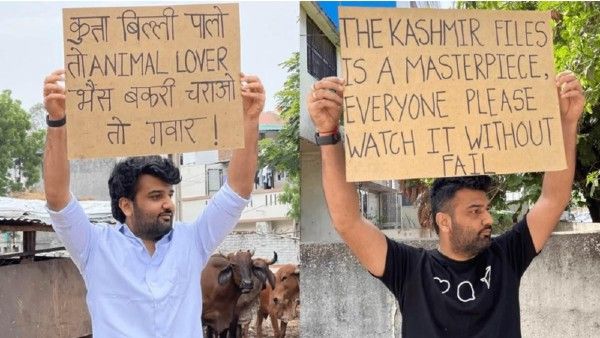 कुत्ता बिल्ली पालो
तो ANIMAL LOVER
भैंस बकरी चराओ
तो गवार !
THE KASHMIR FILES
IS A MASTERPIECE,
EVERYONE PLEASE
WATCH IT WITHOUT
FAIL